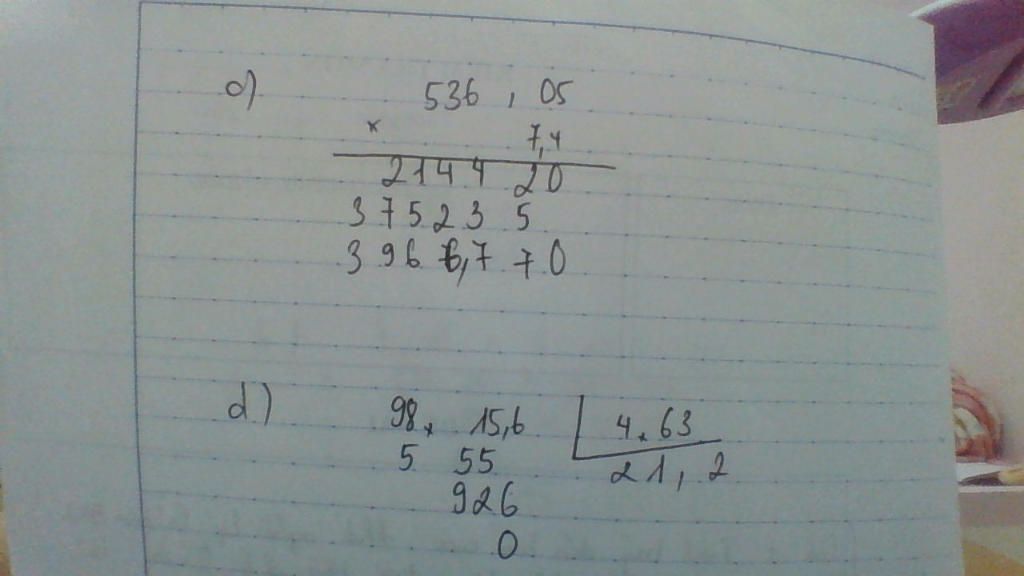 c) 536 , 05
x 7,4
2144 20
37523 5
3966,7 70
d) 98, 15,6 4,63
5 55 21, 2
926
0